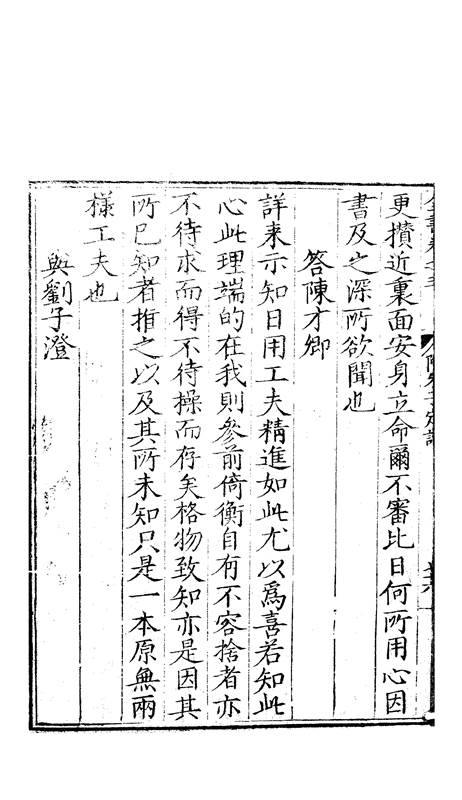 更攅近裏面安身立命爾不審比日何所用心因
書及之深所欲聞也
答陳才卿
詳來示知日用工夫精進如此尤以爲喜若知此
心此理端的在我則參前倚衡自有不容捨者亦
不待求而得不待操而存矣格物致知亦是因其
所已知者推之以及其所未知只是一本原無兩
樣工夫也
與劉子澄